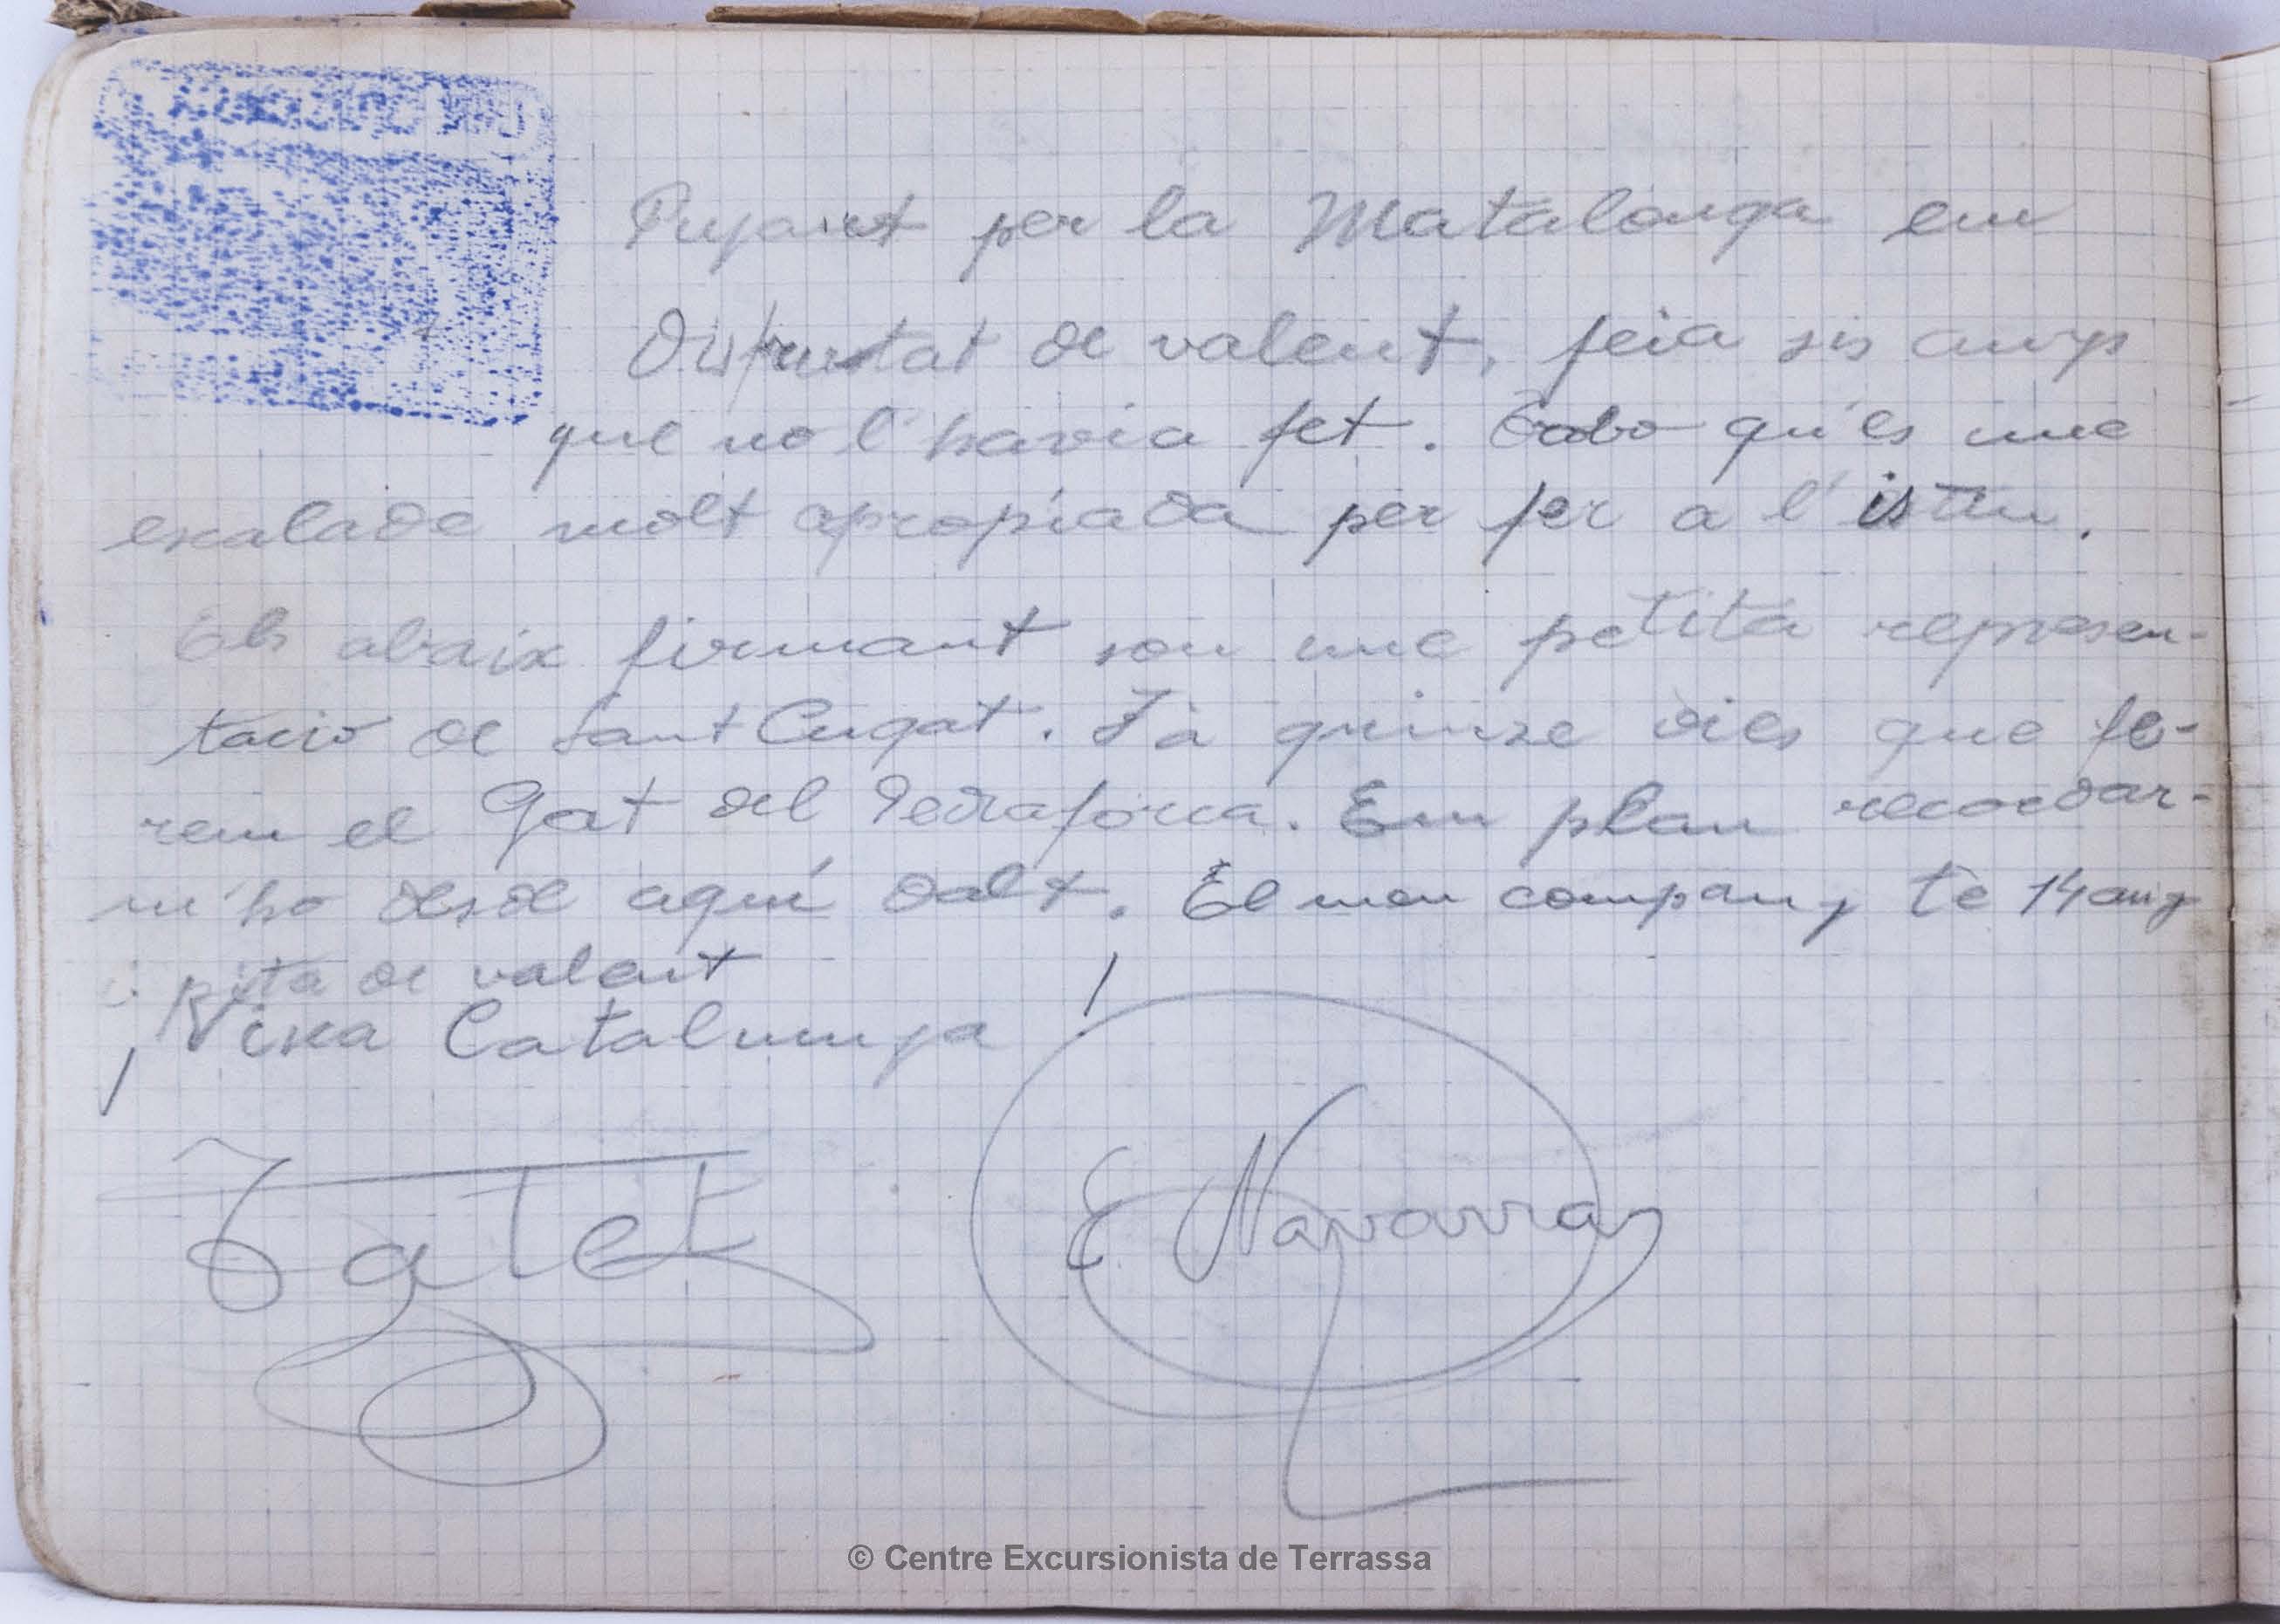 Pujant per la Matalonga em
Disfrutat de valent, feia sis anys
que no l'havia fet. Trobo qu'es una
escalade molt apropiada per fer a l'istiu.
Els abaix firmant son une petita represen-
tacio de Sant Cugat. Fa quinze dies que fe-
rem el Gat del Pedraforca. Em plau recordar-
m'ho desde aquí dalt. El meu company te 14 anys
i pita de valent
Visca Catalunya
E Navarra
© Centre Excursionista de Terrassa